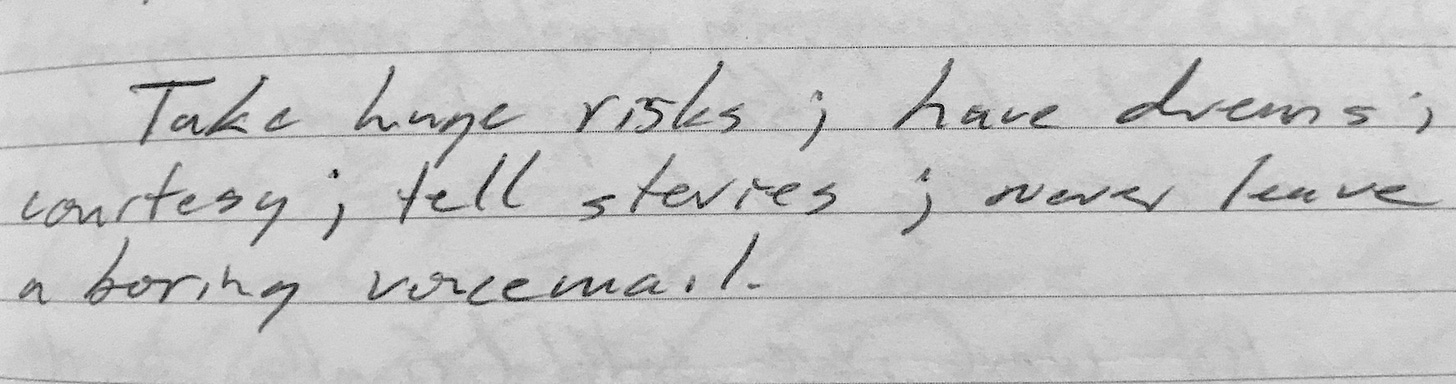 Take huge risks; have dreams;
courtesy; tell stories; never leave
a boring voicemail.